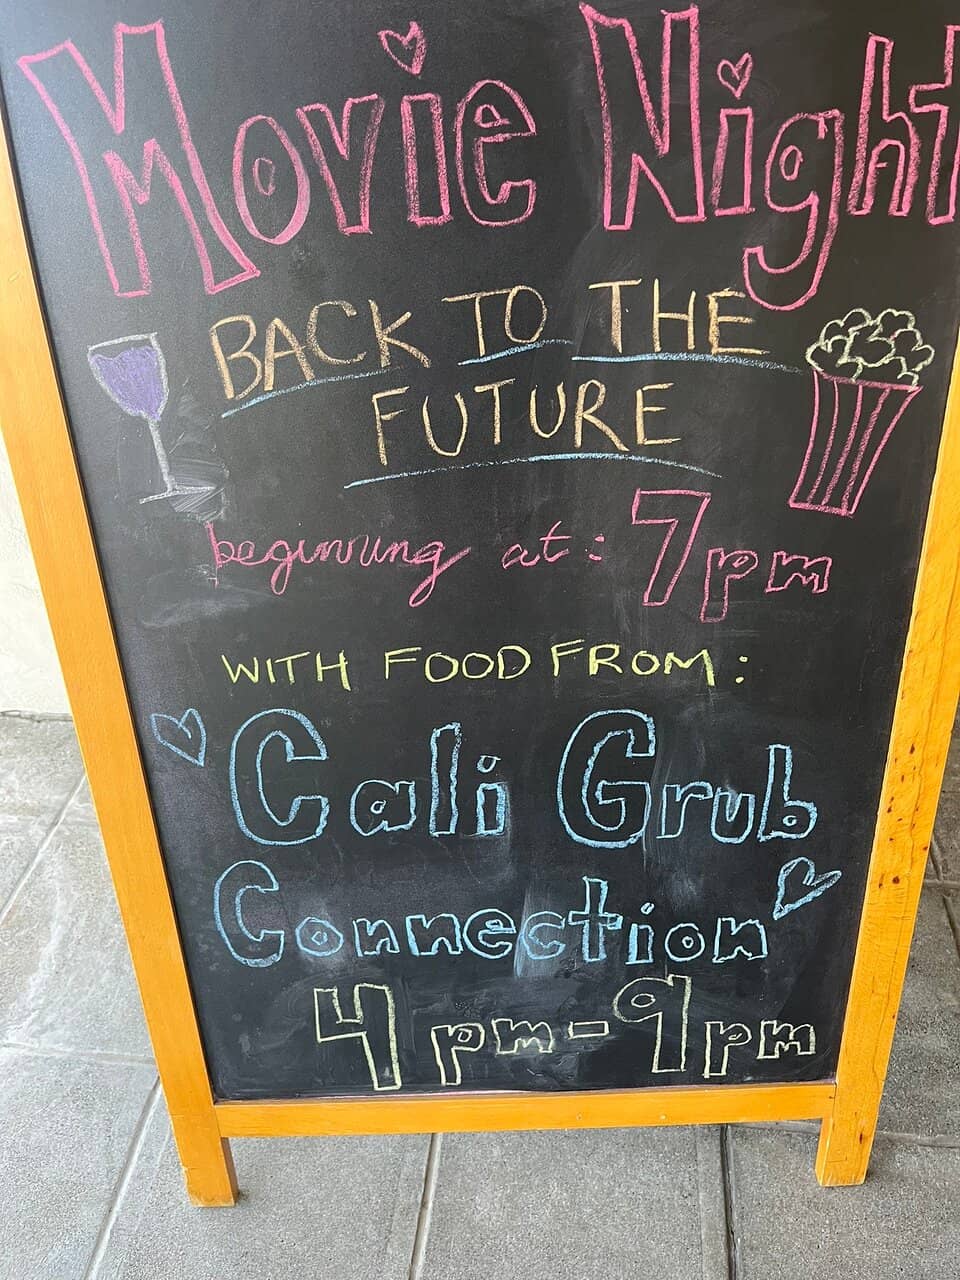 Movie Night
BACK TO THE
FUTURE
beginning at: 7pm
WITH FOOD FROM:
Cali Grub
Connection
4pm-9pm